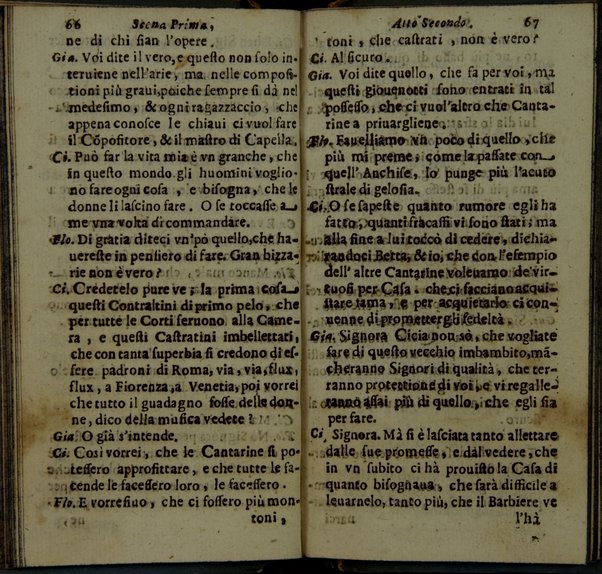 66 Scena Prima,
ne di chi sian l'opere.
Gia. Voi dite il vero, e questo non solo in-
teruiene nell'arie, ma nelle composi-
tioni più graui, poiche sempre si dà nel
medesimo, & ogni ragazzaccio, che
appena conosce le chiaui ci vuol fare
il Cõpositore, & il mastro di Capella.
Ci. Può far la vita mia è vn granche, che
in questo mondo gli huomini voglio-
no fare ogni cosa, e bisogna, che le
donne li lascino fare. O se toccasse a
me vna volta di commandare.
Flo. Di gratia diteci vn'pò quello, che ha-
uereste in pensiero di fare. Gran bizza-
rie non è vero?
Ci. Credetelo pure ve; la prima cosa
questi Contraltini di primo pelo, che
per tutte le Corti seruono alla Came-
ra, e questi Castratini imbellettati,
che con tanta superbia si credono di es-
sere padroni di Roma, via, via, flux,
flux, a Fiorenza, a Venetia, poi vorrei
che tutto il guadagno fosse delle don-
ne, dico della musica vedete?
Gia. O già s'intende.
Ci. Così vorrei, che le Cantarine si po-
tessero approfittare, e che tutte le fa-
cende le facessero loro, le facessero.
Flo. E vorresiuo, che ci fossero più mon-
toni,
Atto Secondo. 67
toni, che castrati, non è vero?
Ci. Al sicuro.
Gia. Voi dite quello, che fa per voi, ma
questi giouenotti sono entrati in tal
possesso, che ci vuol'altro che Canta-
rine a priuargliene.
Flo. Fauelliamo vn poco di quello, che
più mi preme, come la passate con
quell'Anchise, lo punge più l'acuto
strale di gelosia.
Ci. O se sapeste quanto rumore egli ha
fatto, quanti fracassi vi sono stati; ma
alla fine a lui toccò di cedere, dichia-
randoci Betta, & io, che don l'esempio
dell'altre Cantarine voleuamo de'vir-
tuosi per Casa. che ci facciano acqui-
stare fama, e per acquietarlo ci con-
uenne di promettergli fedeltà.
Gia. Signora Cicia non sò, che vogliate
fare di questo vecchio imbambito, mã-
cheranno Signori di qualità, che ter-
ranno protettione di voi, e vi regalle-
ranno assai più di quello, che egli sia
per fare.
Ci. Signora. Mà si è lasciata tanto allettare
dalle sue promesse, e dal vedere, che
in vn subito ci hà prouisto la Casa di
quanto bisognaua, che sarà difficile a
leuarnelo, tanto più, che il Barbiere ve
l'hà